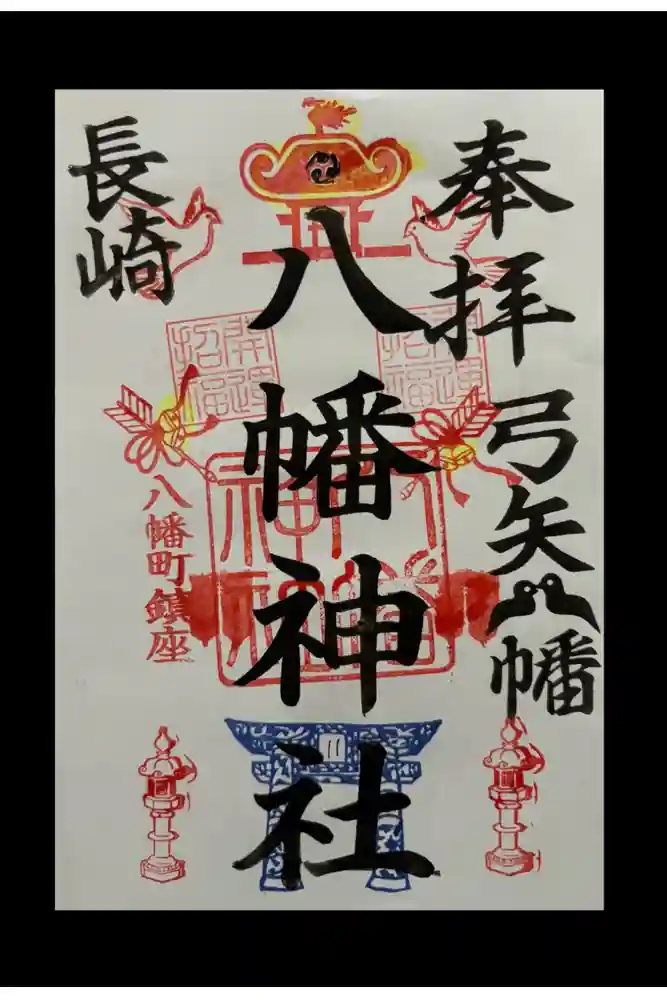 奉拝
弓矢八幡
開運
招福
八幡神社
開運
招福
長崎
八幡町鎮座